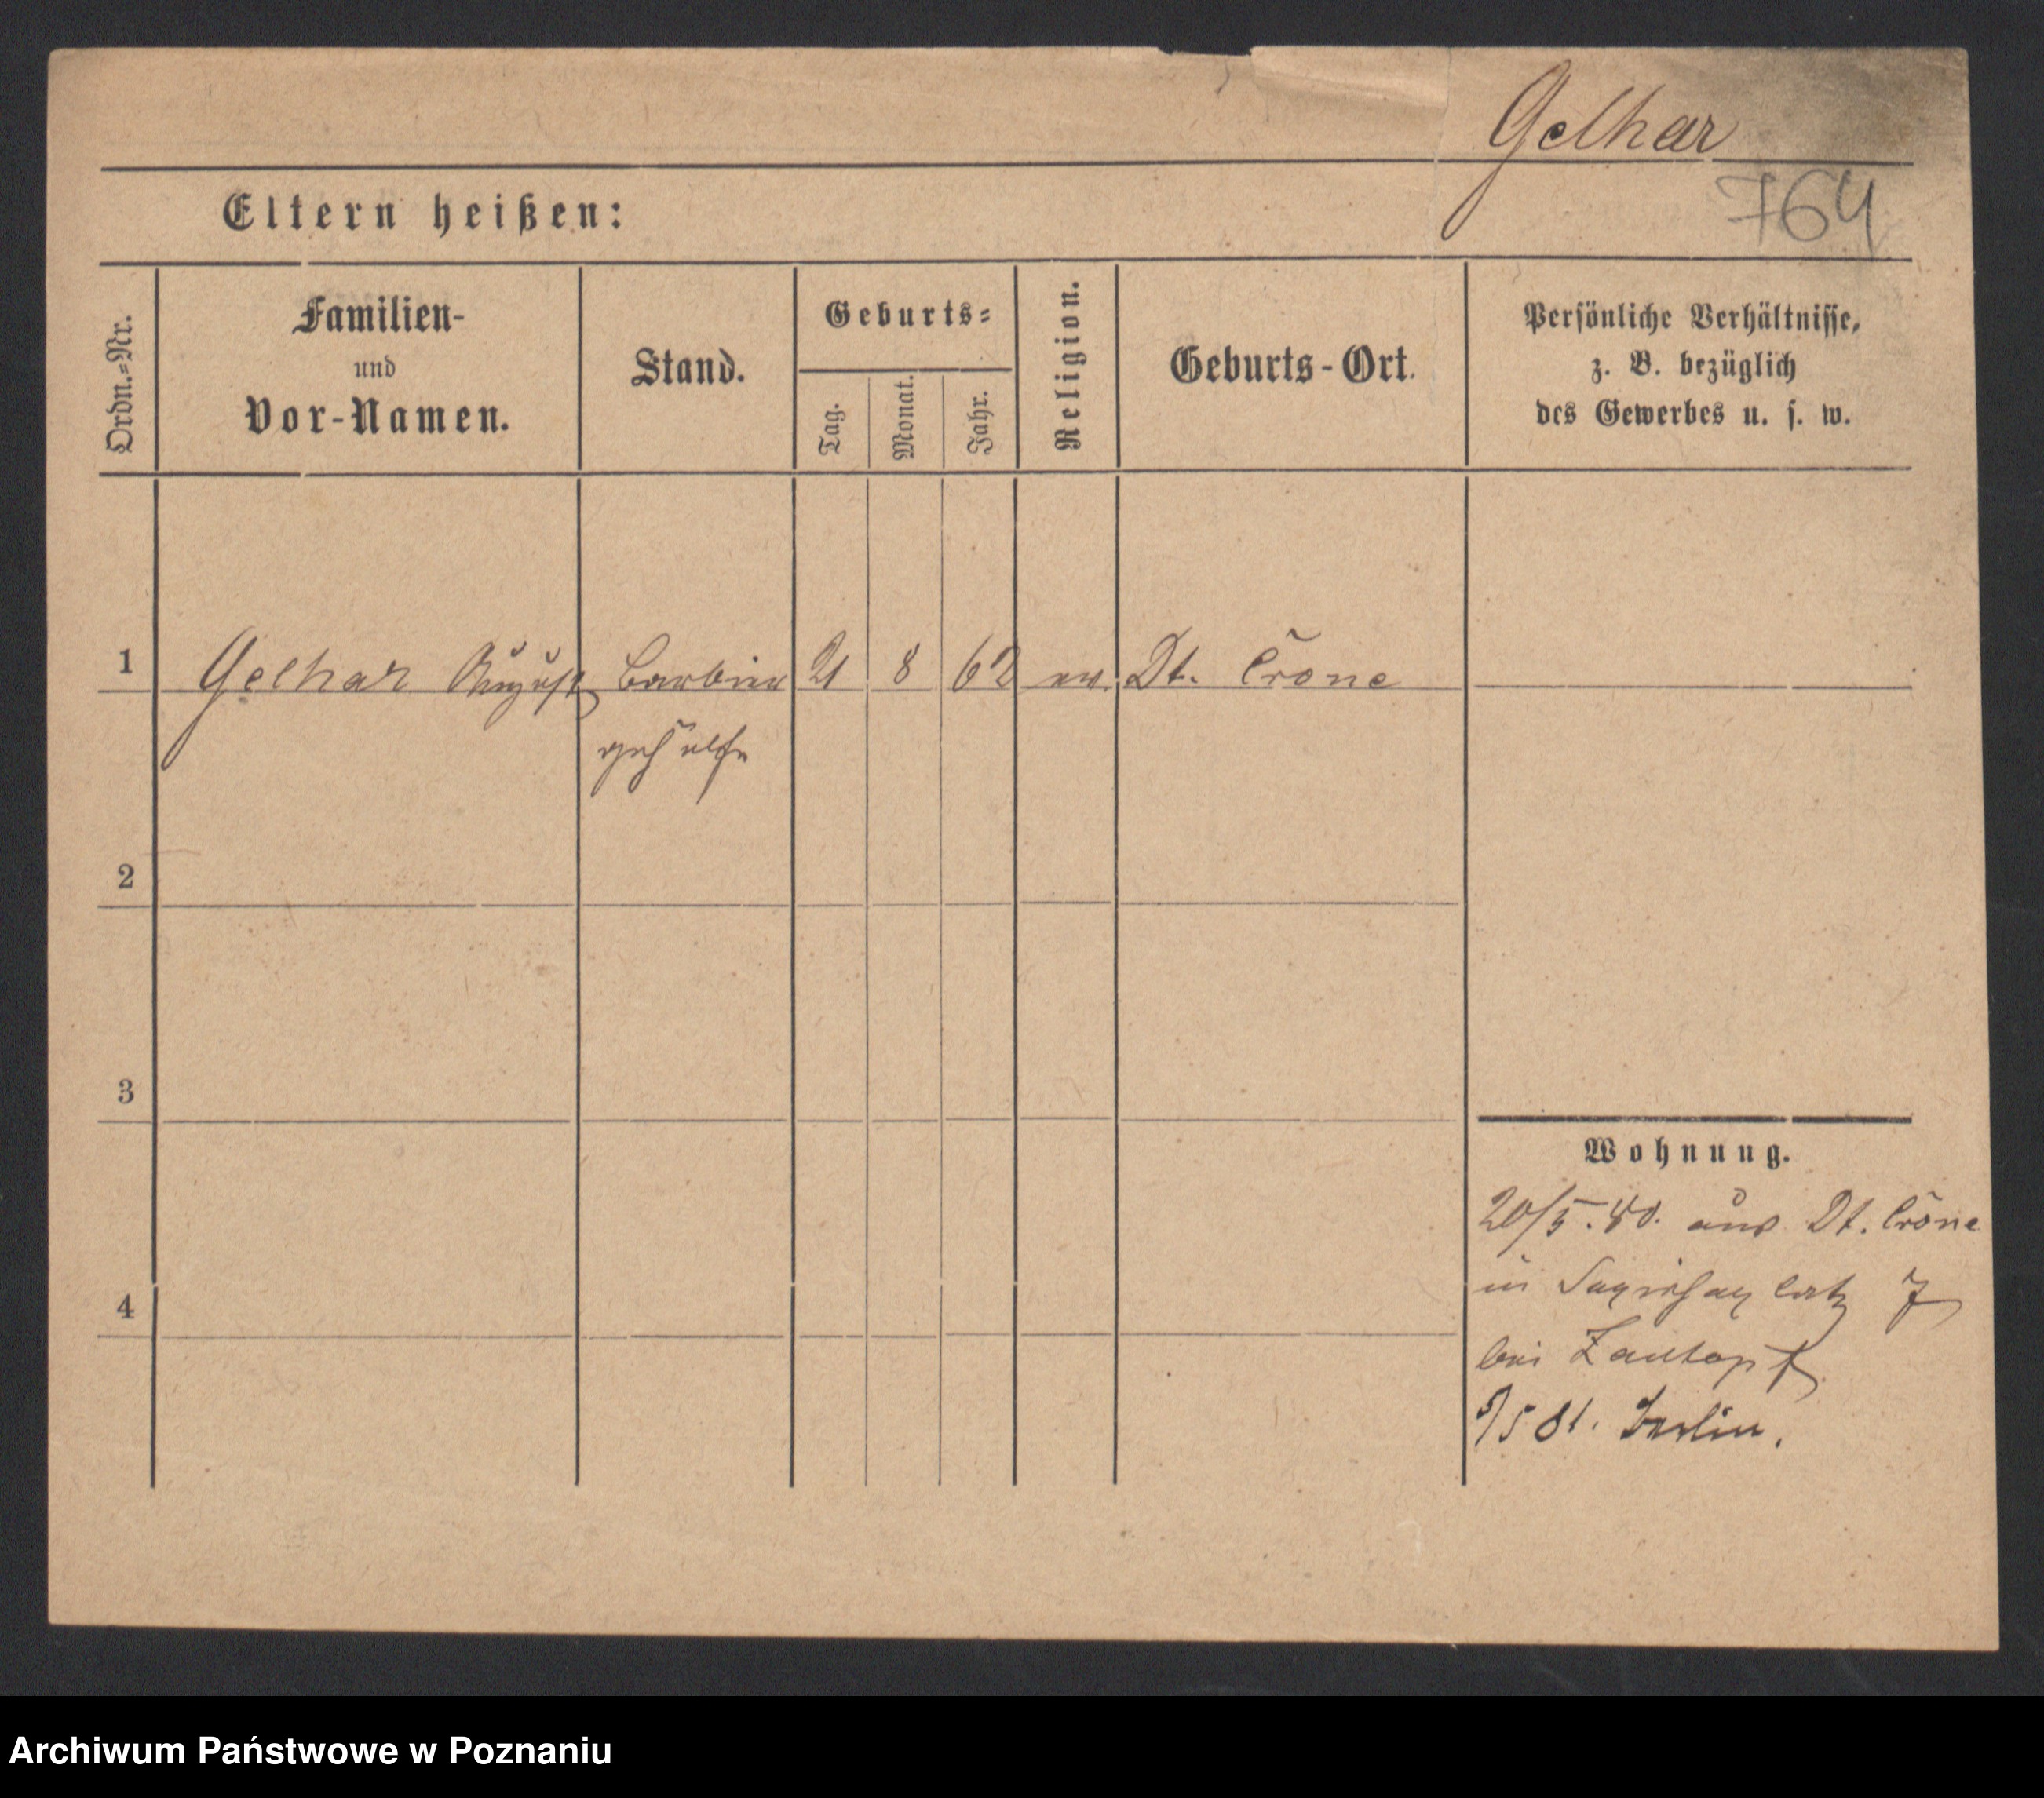 Gelhar
764
Eltern heißen:
Ordn.=Nr.
Familien-
und
Vor-Namen.
Stand.
Geburts=
Tag.
Monat.
Jahr.
Religion.
Geburts-Ort.
Persönliche Verhältnisse,
z. B. bezüglich
des Gewerbes u. s. w.
1 Gelhar August Barbier 21 8 62 ev. Dt. Crone
gehülfe
2
3
4
Wohnung.
20/5. 80. aus Dt. Crone
in Sapiehaplatz 7
bei Zautopf
9/5 81. Berlin.
Archiwum Państwowe w Poznaniu